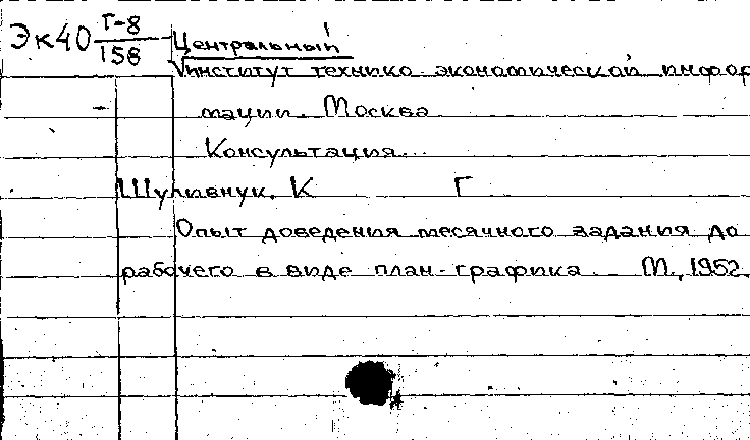 Эк40 Г-8
158
Центральный
институт технико экономической инфор
мации. Москва
Консультация...
К Г
Опыт доведения месячного задания до
рабочего в виде план-графика. М., 1952